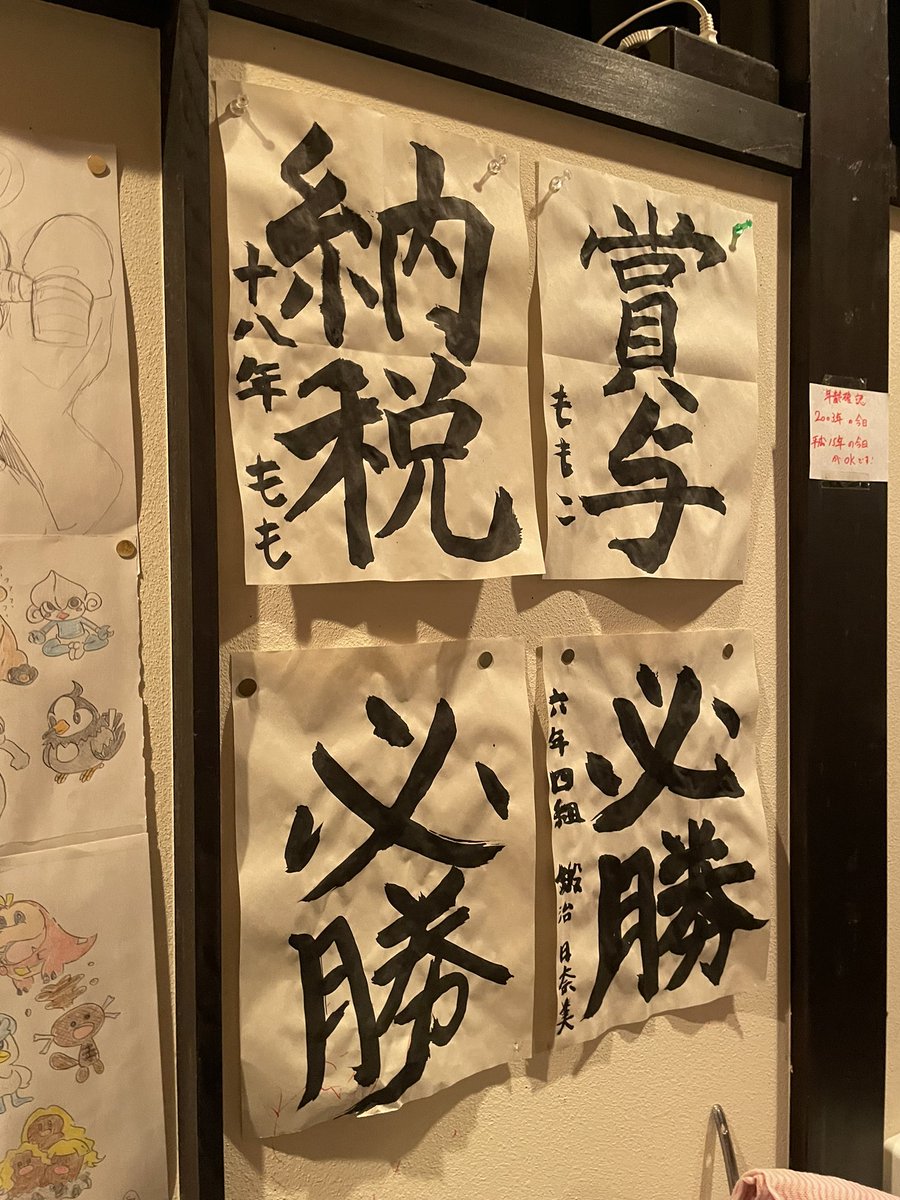 賞与
ももこ
納税
十八年 もも
必勝
六年四組 鍛治日奈美
必勝
年齢確認
2003年の今日
平成15年の今日
がOKです!